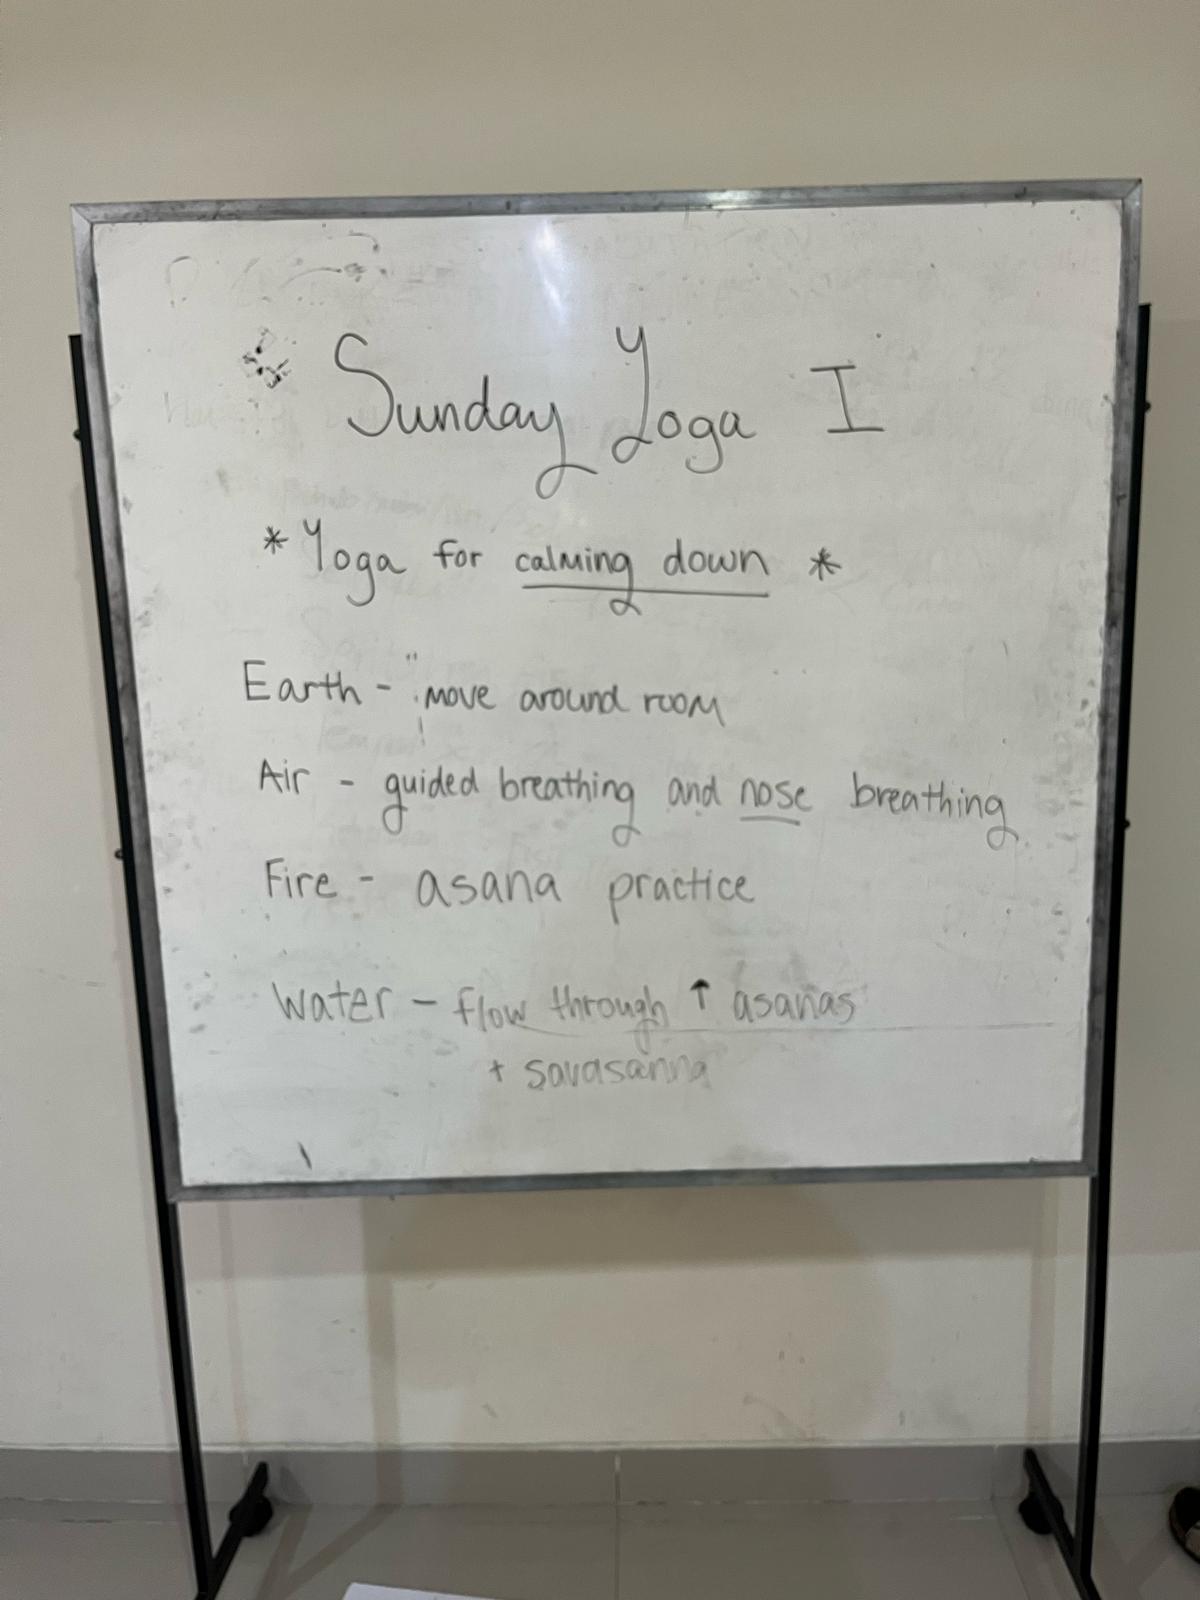 Sunday Yoga I
* Yoga for calming down *
Earth - move around room
Air - guided breathing and nose breathing
Fire - asana practice
Water - flow through ↑ asanas
+ savasanna